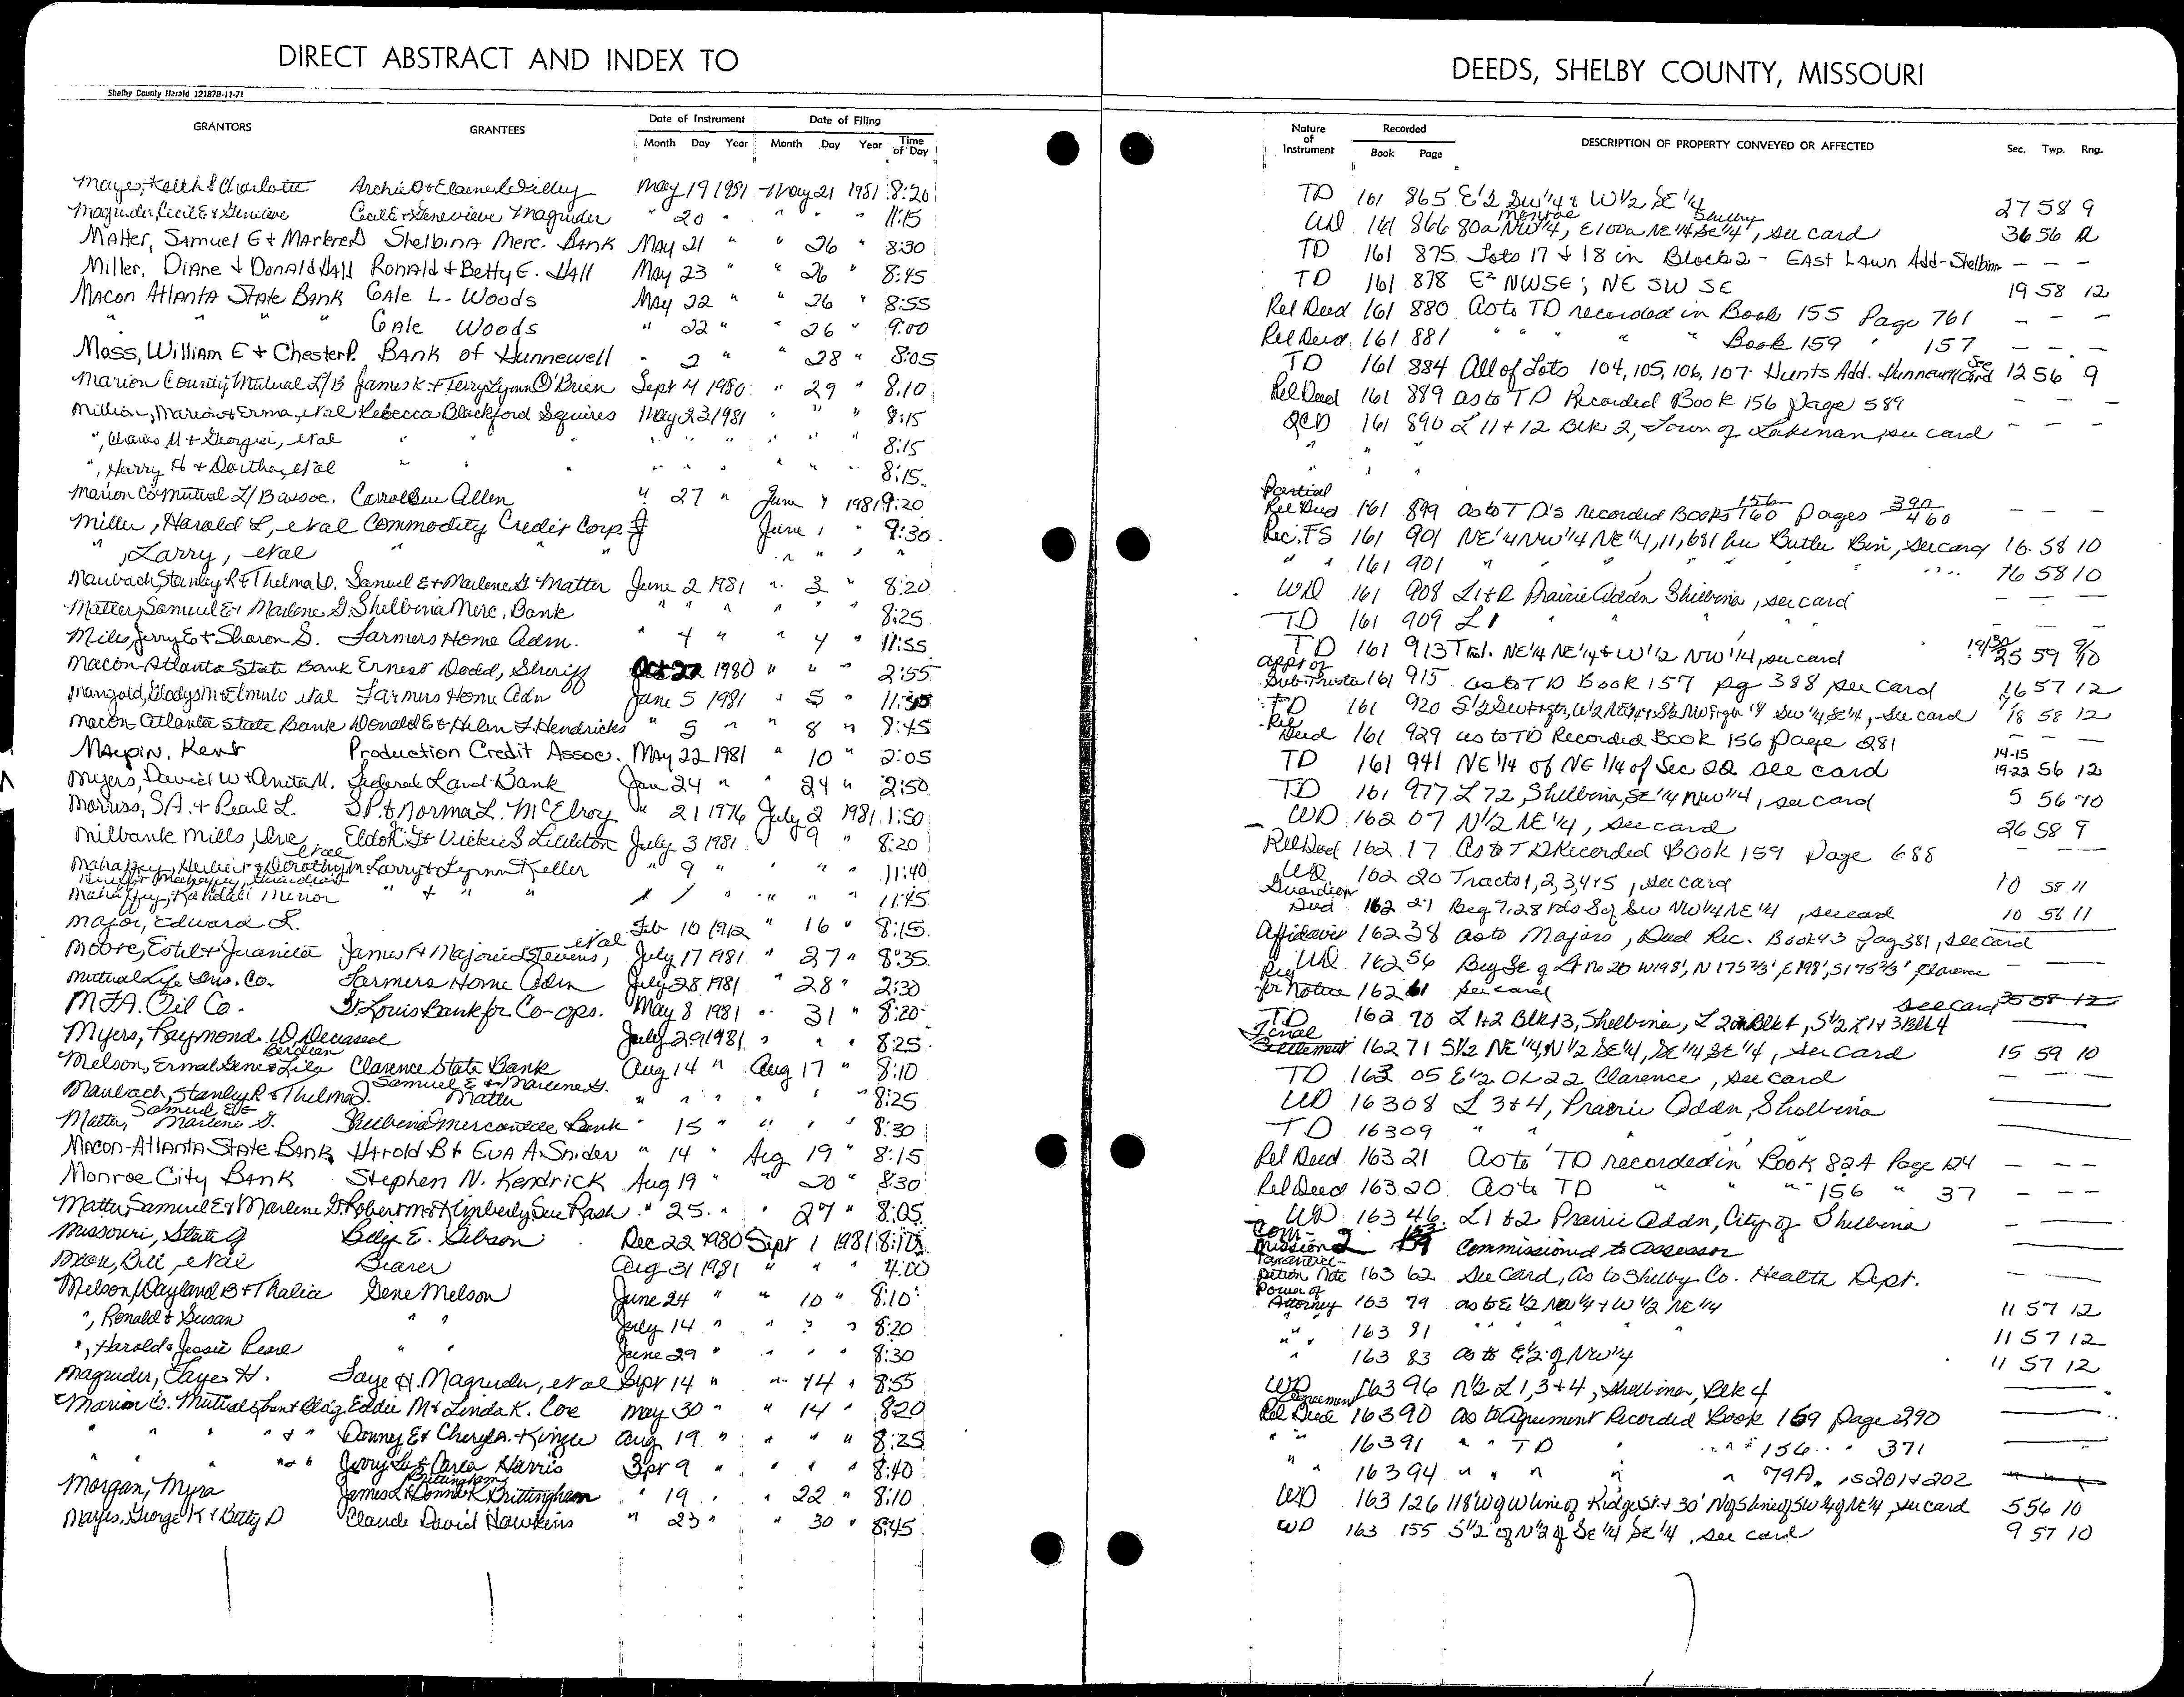 DIRECT ABSTRACT AND INDEX TO
Shelby County Herald 121878-11-71
GRANTORS GRANTEES Date of Instrument Date of Filing
Month Day Year Month Day Year Time of Day
Mayes, Keith & Charlotte Archie D & Elaine Willey May 19 1981 May 21 1981 8:20
Magruder, Cecil E & Genevieve Cecil E & Genevieve Magruder " 20 " " " " 11:15
Matter, Samuel E & Marlene D Shelbina Merc. Bank May 21 " " 26 " 8:30
Miller, Diane & Donald Hall Ronald & Betty E. Hall May 23 " " 26 " 8:45
Macon Atlanta State Bank Gale L. Woods May 22 " " 26 " 8:55
" " " " Gale Woods " 22 " " 26 " 9:00
Moss, William E & Chester P. Bank of Hunnewell " 2 " " 28 " 8:05
Marion County Mutual L/B James K. & Terry Lynn O'Brien Sept 4 1980 " 29 " 8:10
Million, Marion & Erma, et al Rebecca Blackford Squires May 23 1981 " " " 8:15
", Charles H & Georgia, et al " " " " " " " 8:15
", Harry H & Dortha, et al " " " " " " " 8:15
Marion Co Mutual L/B assoc. Carroll Sue Allen " 27 " June 4 1981 9:20
Miller, Harold L, et al Commodity Credit Corp. June 1 " 9:30
", Larry, et al " " " " " "
Maubach, Stanley R & Thelma D. Samuel E & Marlene G Matter June 2 1981 " 3 " 8:20
Matter, Samuel E & Marlene G Shelbina Merc. Bank " " " " " " 8:25
Miles, Jerry E & Sharon S. Farmers Home Adm. " 4 " " 4 " 11:55
Macon-Atlanta State Bank Ernest Dodd, Sheriff Oct 22 1980 " " " 2:55
Mangold, Gladys M & Elmer et al Farmers Home Adm June 5 1981 " 5 "
Macon Atlanta State Bank Donald E & Helen F. Hendricks " 5 " " 8 " 8:45
Maupin, Kent Production Credit Assoc. May 22 1981 " 10 " 2:05
Myers, David W & Anita M. Federal Land Bank Jan 24 " " 24 " 2:50
Morriss, S.A. & Pearl L. S.P. & Norma L. McElroy " 21 1976 July 2 1981 1:50
Milbank Mills, Inc et al Eldon G & Vickie S Littleton July 3 1981 " 9 " 8:20
Mahaffey, Herbert & Dorothy M Larry & Lynn Keller " 9 " " " " 11:40
Mahaffey, Guardian
Mahaffey, Randall Minor " & " " " " " " 11:45
Major, Edward L. Feb 10 1912 " 16 " 8:15
Moore, Estel & Juanita James H & Majorie Stevens, et al July 17 1981 " 27 " 8:35
Mutual Life Ins. Co. Farmers Home Adm July 28 1981 " 28 " 2:30
M.F.A. Oil Co. St Louis Bank for Co-ops. May 8 1981 " 31 " 8:20
Myers, Raymond W, Deceased July 29 1981 " " " 8:25
Melson, Ermal Gene & Lila Berdian Clarence State Bank Aug 14 " Aug 17 " 8:10
Maubach, Stanley R & Thelma D. Samuel E & Marlene G. Matter " " " " " " 8:25
Matter, Samuel E & Marlene G. Shelbina Mercantile Bank " 15 " " " " 8:30
Macon-Atlanta State Bank Harold B & Eva A. Snider " 14 " Aug 19 " 8:15
Monroe City Bank Stephen N. Kendrick Aug 19 " " 20 " 8:30
Matter, Samuel E & Marlene G. Robert M & Kimberly Sue Rash " 25 " " 27 " 8:05
Missouri, State of Billy E. Gibson Dec 22 1980 Sept 1 1981 8:10
Mack, Bill, et al Bearer Aug 31 1981 " " " 4:00
Melson, Wayland B & Thalia Gene Melson June 24 " " 10 " 8:10
", Ronald & Susan " " July 14 " " " " 8:20
", Harold & Jessie Pearl " " June 29 " " " " 8:30
Magruder, Faye H. Faye H. Magruder, et al Sept 14 " " 14 " 8:55
Marion Co. Mutual Loan & Bldg Eddie M & Linda K. Coe May 30 " " 14 " 8:20
" " " " & " Donney E & Cheryl A. Kinzu Aug 19 " " " " 8:25
" " " " & " Jerry L & Carla Harris Sept 9 " " " " 8:40
Morgan, Myra James L & Donna K Brittingham " 19 " " 22 " 8:10
Mayes, George K & Betty D Claude David Hawkins " 23 " " 30 " 8:45
DEEDS, SHELBY COUNTY, MISSOURI
Nature of Instrument Recorded DESCRIPTION OF PROPERTY CONVEYED OR AFFECTED Sec. Twp. Rng.
Book Page
TD 161 865 E½ SW¼ & W½ SE¼ 27 58 9
WD 161 866 80a Monroe NW¼, E100a NE¼ SE¼ Shelby, see card 36 56 12
TD 161 875 Lots 17 & 18 in Block 2 - East Lawn Add-Shelbina — — —
TD 161 878 E² NWSE; NE SW SE 19 58 12
Rel Deed 161 880 As to TD recorded in Book 155 Page 761 — — —
Rel Deed 161 881 " " " " Book 159 " 157 — — —
TD 161 884 All of Lots 104, 105, 106, 107 Hunts Add. Hunnewell See Card 12 56 9
Rel Deed 161 889 as to TD Recorded Book 156 Page 589 — — —
QCD 161 890 L 11 + 12 Blk 2, Town of Lakenan, see card — — —
" " "
" " "
Partial Rel Deed 161 899 as to TD's recorded Books 156/160 pages 390/460 — — —
Rec. FS 161 901 NE¼ NW¼ NE¼, 11,681 bu Butler Bin, see card 16 58 10
" " 161 901 " " " " " " 16 58 10
WD 161 908 L1+2 Prairie Addn Shelbina, see card — — —
TD 161 909 L1 " " " — — —
TD 161 913 Trl. NE¼ NE¼ & W½ NW¼, see card 25 59 9/10
Appt of Sub Trustee 161 915 as to TD Book 157 pg 388 see card 16 57 12
TD 161 920 SW¼ SE¼, see card 7/18 58 12
Rel Deed 161 929 as to TD Recorded Book 156 page 281 — — —
TD 161 941 NE¼ of NE¼ of Sec 22 see card 14-15 19-22 56 12
TD 161 977 L 72, Shelbina, SE¼ NW¼, see card 5 56 10
WD 162 07 N½ NE¼, see card 26 58 9
Rel Deed 162 17 As to TD Recorded Book 159 Page 688 — — —
WD 162 20 Tracts 1, 2, 3, 4 & 5, see card 10 58 11
Guardian Deed 162 21 Beg 7.28 rds S of SW NW¼ NE¼, see card 10 58 11
Affidavit 162 38 as to Majors, Deed Rec. Book 43 Pag 381, see card
WD 162 56 Beg SE of Lt No 20 W198', N 175⅔', E198', S175⅔' Clarence — —
Req for Notice 162 61 see card
TD 162 70 L 1+2 Blk 13, Shelbina, L 2 Blk 4, S½ L 1+3 Blk 4 see card
Final Settlement 162 71 S½ NE¼, N½ SE¼, SE¼ SE¼, see card 15 59 10
TD 163 05 E½ OL 22 Clarence, see card — — —
WD 163 08 L 3+4, Prairie Addn, Shelbina
TD 163 09 " " " "
Rel Deed 163 21 As to TD recorded in Book 82A Page 124 — — —
Rel Deed 163 20 As to TD " " " 156 " 37 — — —
WD 163 46 L1 & 2 Prairie Addn, City of Shelbina
Commission 2 Commissioned to Assessor
Note 163 62 See Card, as to Shelby Co. Health Dept.
Power of Attorney 163 79 as to E½ NW¼ & W½ NE¼ 11 57 12
" " 163 81 " " " " 11 57 12
" 163 83 as to E½ of NW¼ 11 57 12
WD 163 96 N½ L 1, 3+4, Shelbina, Blk 4
Agreement Rel Deed 163 90 as to Agreement Recorded Book 159 Page 290
" " 163 91 " " TD " " " 156 " 371
" " 163 94 " " " " " 79A, 201 & 202
WD 163 126 118' W of W line of Ridge St. & 30' N of S line of SW¼ of NE¼, see card 5 56 10
WD 163 155 S½ of N½ of SE¼ SE¼, see card 9 57 10